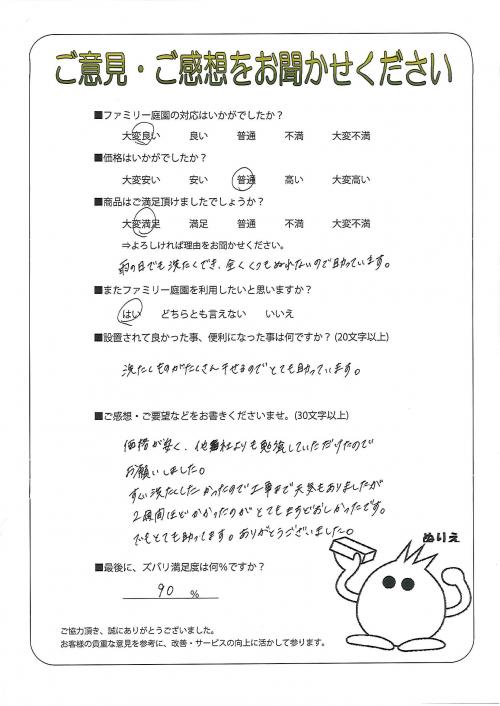 ご意見・ご感想をお聞かせください
■ファミリー庭園の対応はいかがでしたか？
大変良い 良い 普通 不満 大変不満
■価格はいかがでしたか？
大変安い 安い 普通 高い 大変高い
■商品はご満足頂けましたでしょうか？
大変満足 満足 普通 不満 大変不満
⇒よろしければ理由をお聞かせください。
雨の日でも洗たくでき、全くくつもぬれないので助っています。
■またファミリー庭園を利用したいと思いますか？
はい どちらとも言えない いいえ
■設置されて良かった事、便利になった事は何ですか？(20文字以上)
洗たくものがたくさん干せるのでとても助っています。
■ご感想・ご要望などをお書きくださいませ。(30文字以上)
価格が安く、他社よりも勉強していただけたので
お願いしました。
すぐ洗たくしたかったので工事まで天気もありましたが
2週間ほどかかったのがとてもまちどおしかったです。
でもとても助ってます。ありがとうございました。
■最後に、ズバリ満足度は何%ですか？
90 %
ぬりえ
ご協力頂き、誠にありがとうございました。
お客様の貴重な意見を参考に、改善・サービスの向上に活かして参ります。